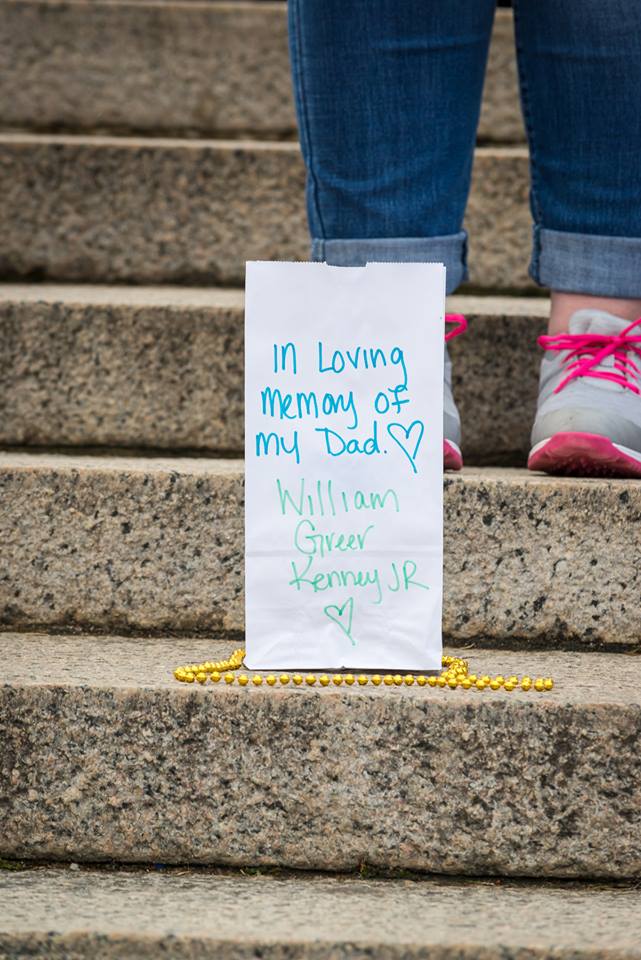 In Loving
memory of
my Dad.
William
Greer
Kenney JR